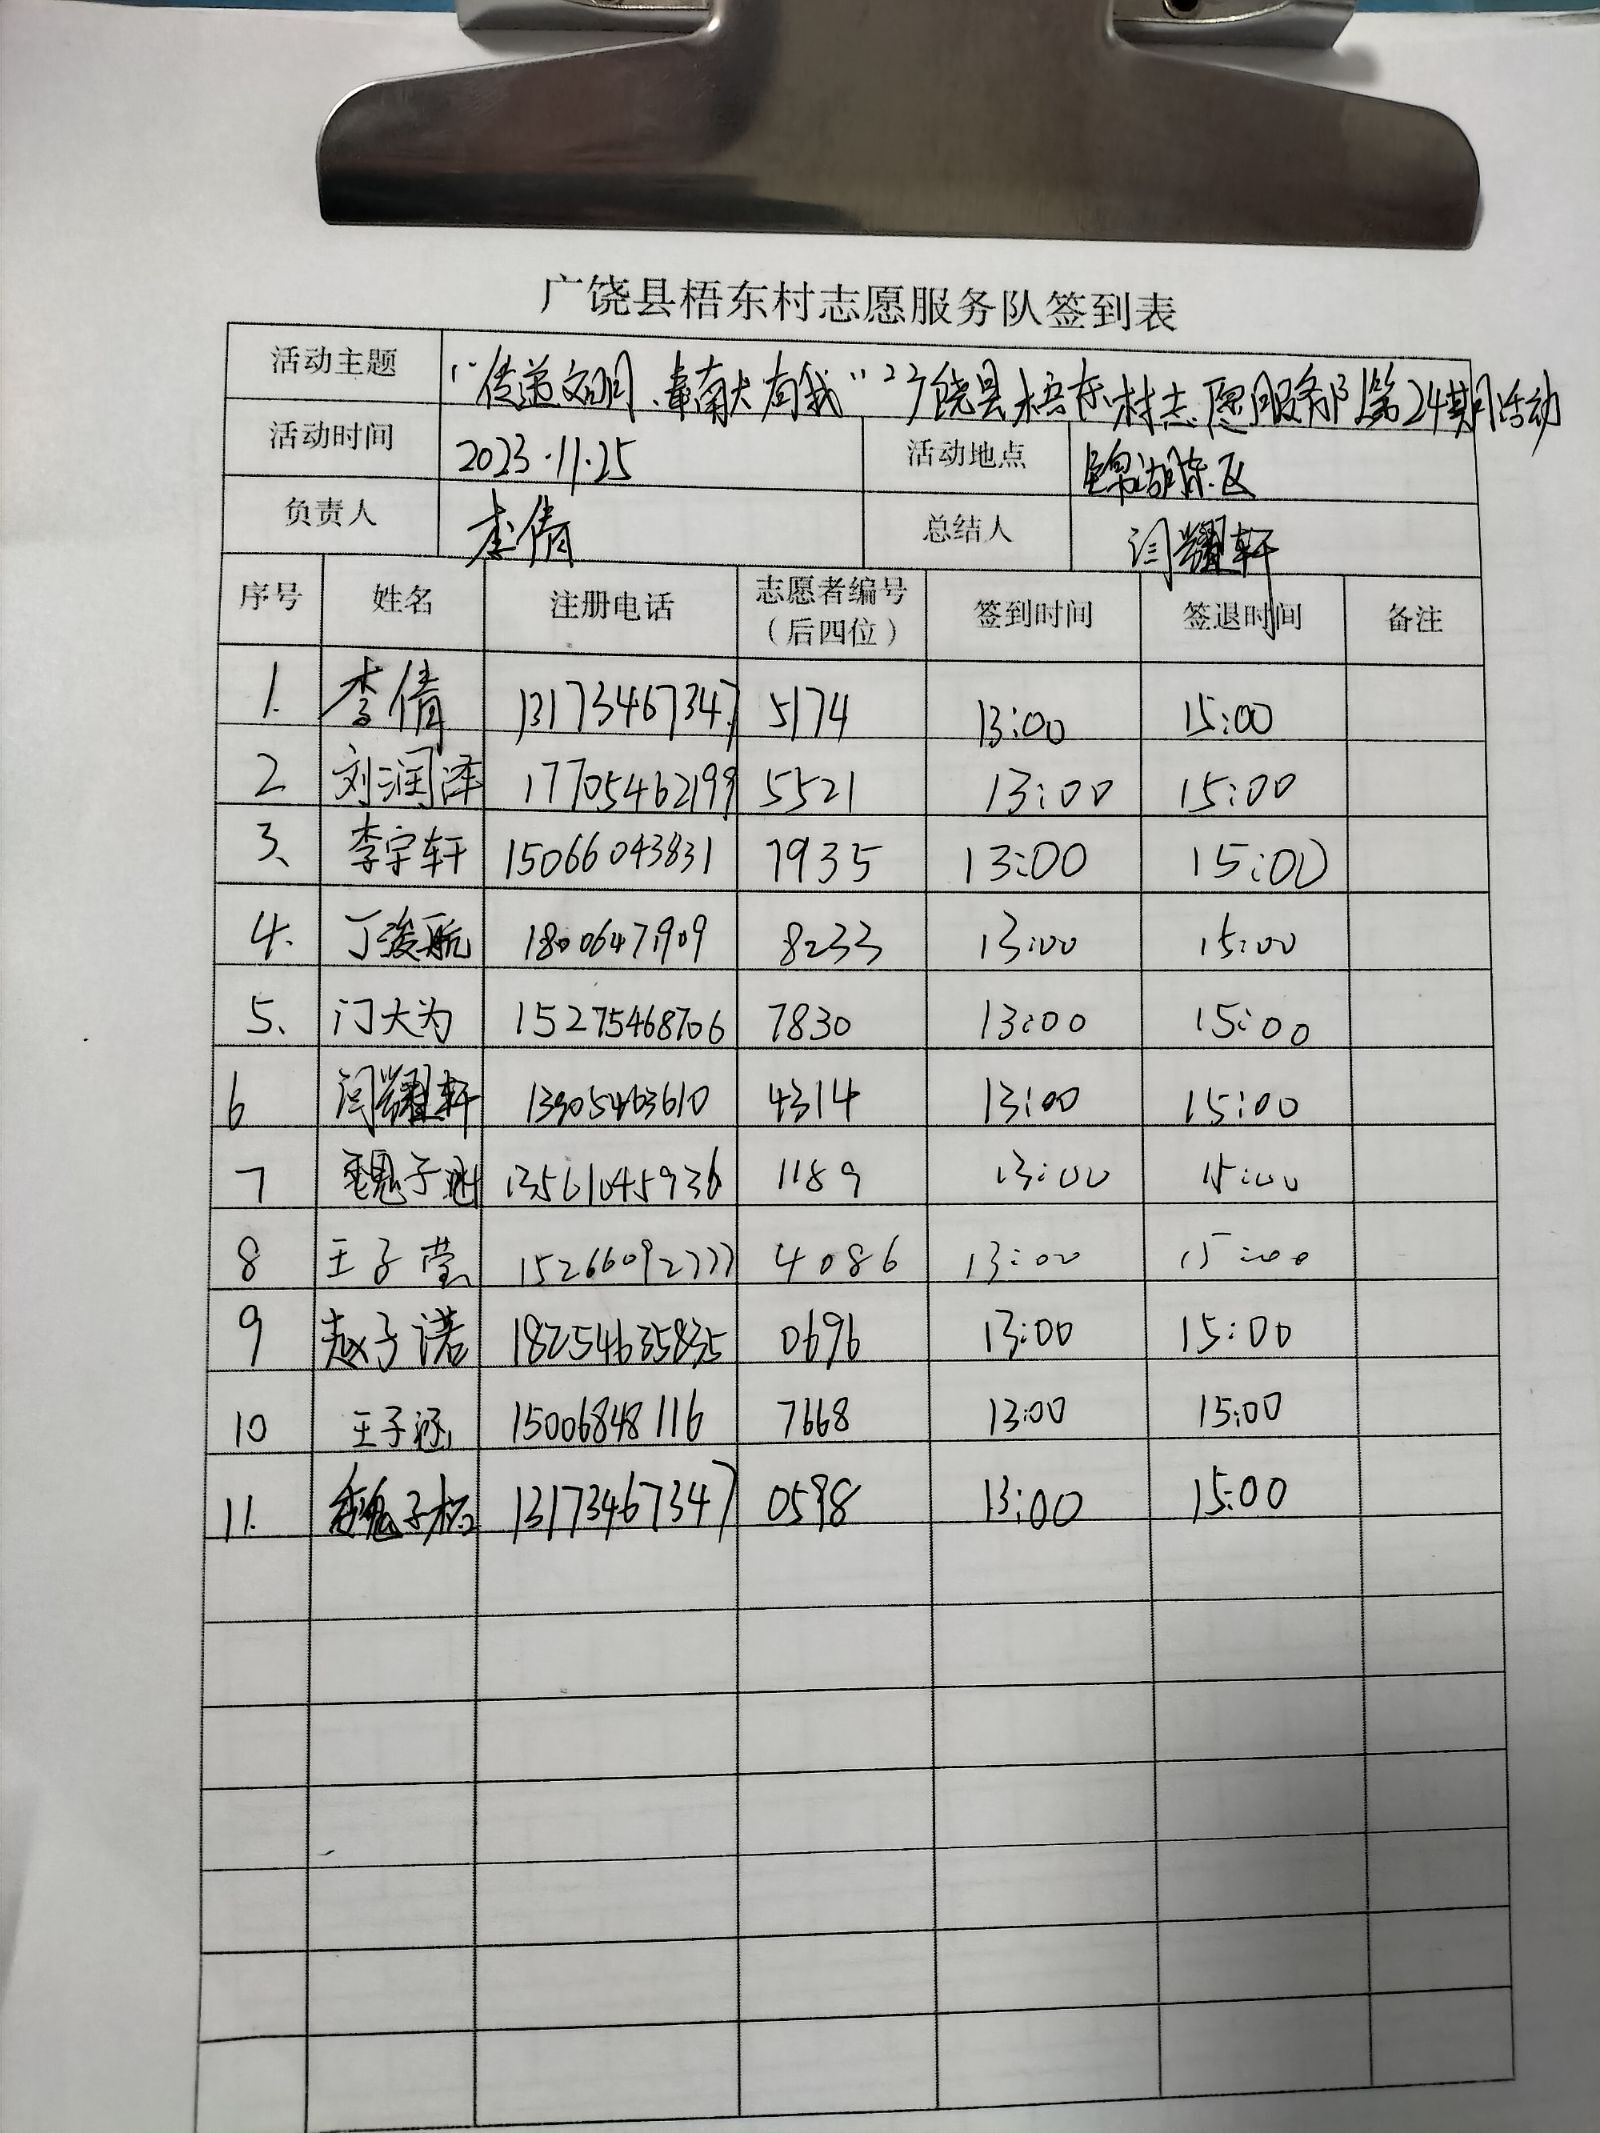 广饶县梧东村志愿服务队签到表
活动主题 “传递文明、奉献大有我” 广饶县梧东村志愿服务队第24期活动
活动时间 2023.11.25 活动地点 锦湖东区
负责人 李倩 总结人 闫耀轩
序号 姓名 注册电话 志愿者编号（后四位） 签到时间 签退时间 备注
1. 李倩 13173467347 5174 13:00 15:00
2 刘润泽 17705462199 5521 13:00 15:00
3、 李宇轩 15066043831 7935 13:00 15:00
4. 丁浚航 18006471909 8233 13:00 15:00
5、 门大为 15275468706 7830 13:00 15:00
6 闫耀轩 13905463610 4314 13:00 15:00
7 魏子 13561045936 1189 13:00 15:00
8 王子莹 15266092777 4086 13:00 15:00
9 赵子诺 18254635835 0696 13:00 15:00
10 王子涵 15006848116 7668 13:00 15:00
11. 魏子 13173467347 0598 13:00 15:00